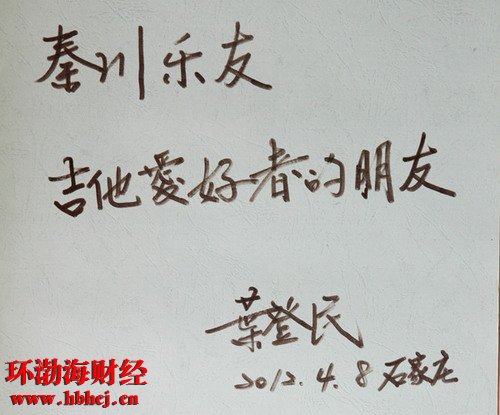 秦川乐友
吉他愛好者的朋友
葉登民
2012.4.8 石家庄
环渤海财经
www.hbhcj.cn